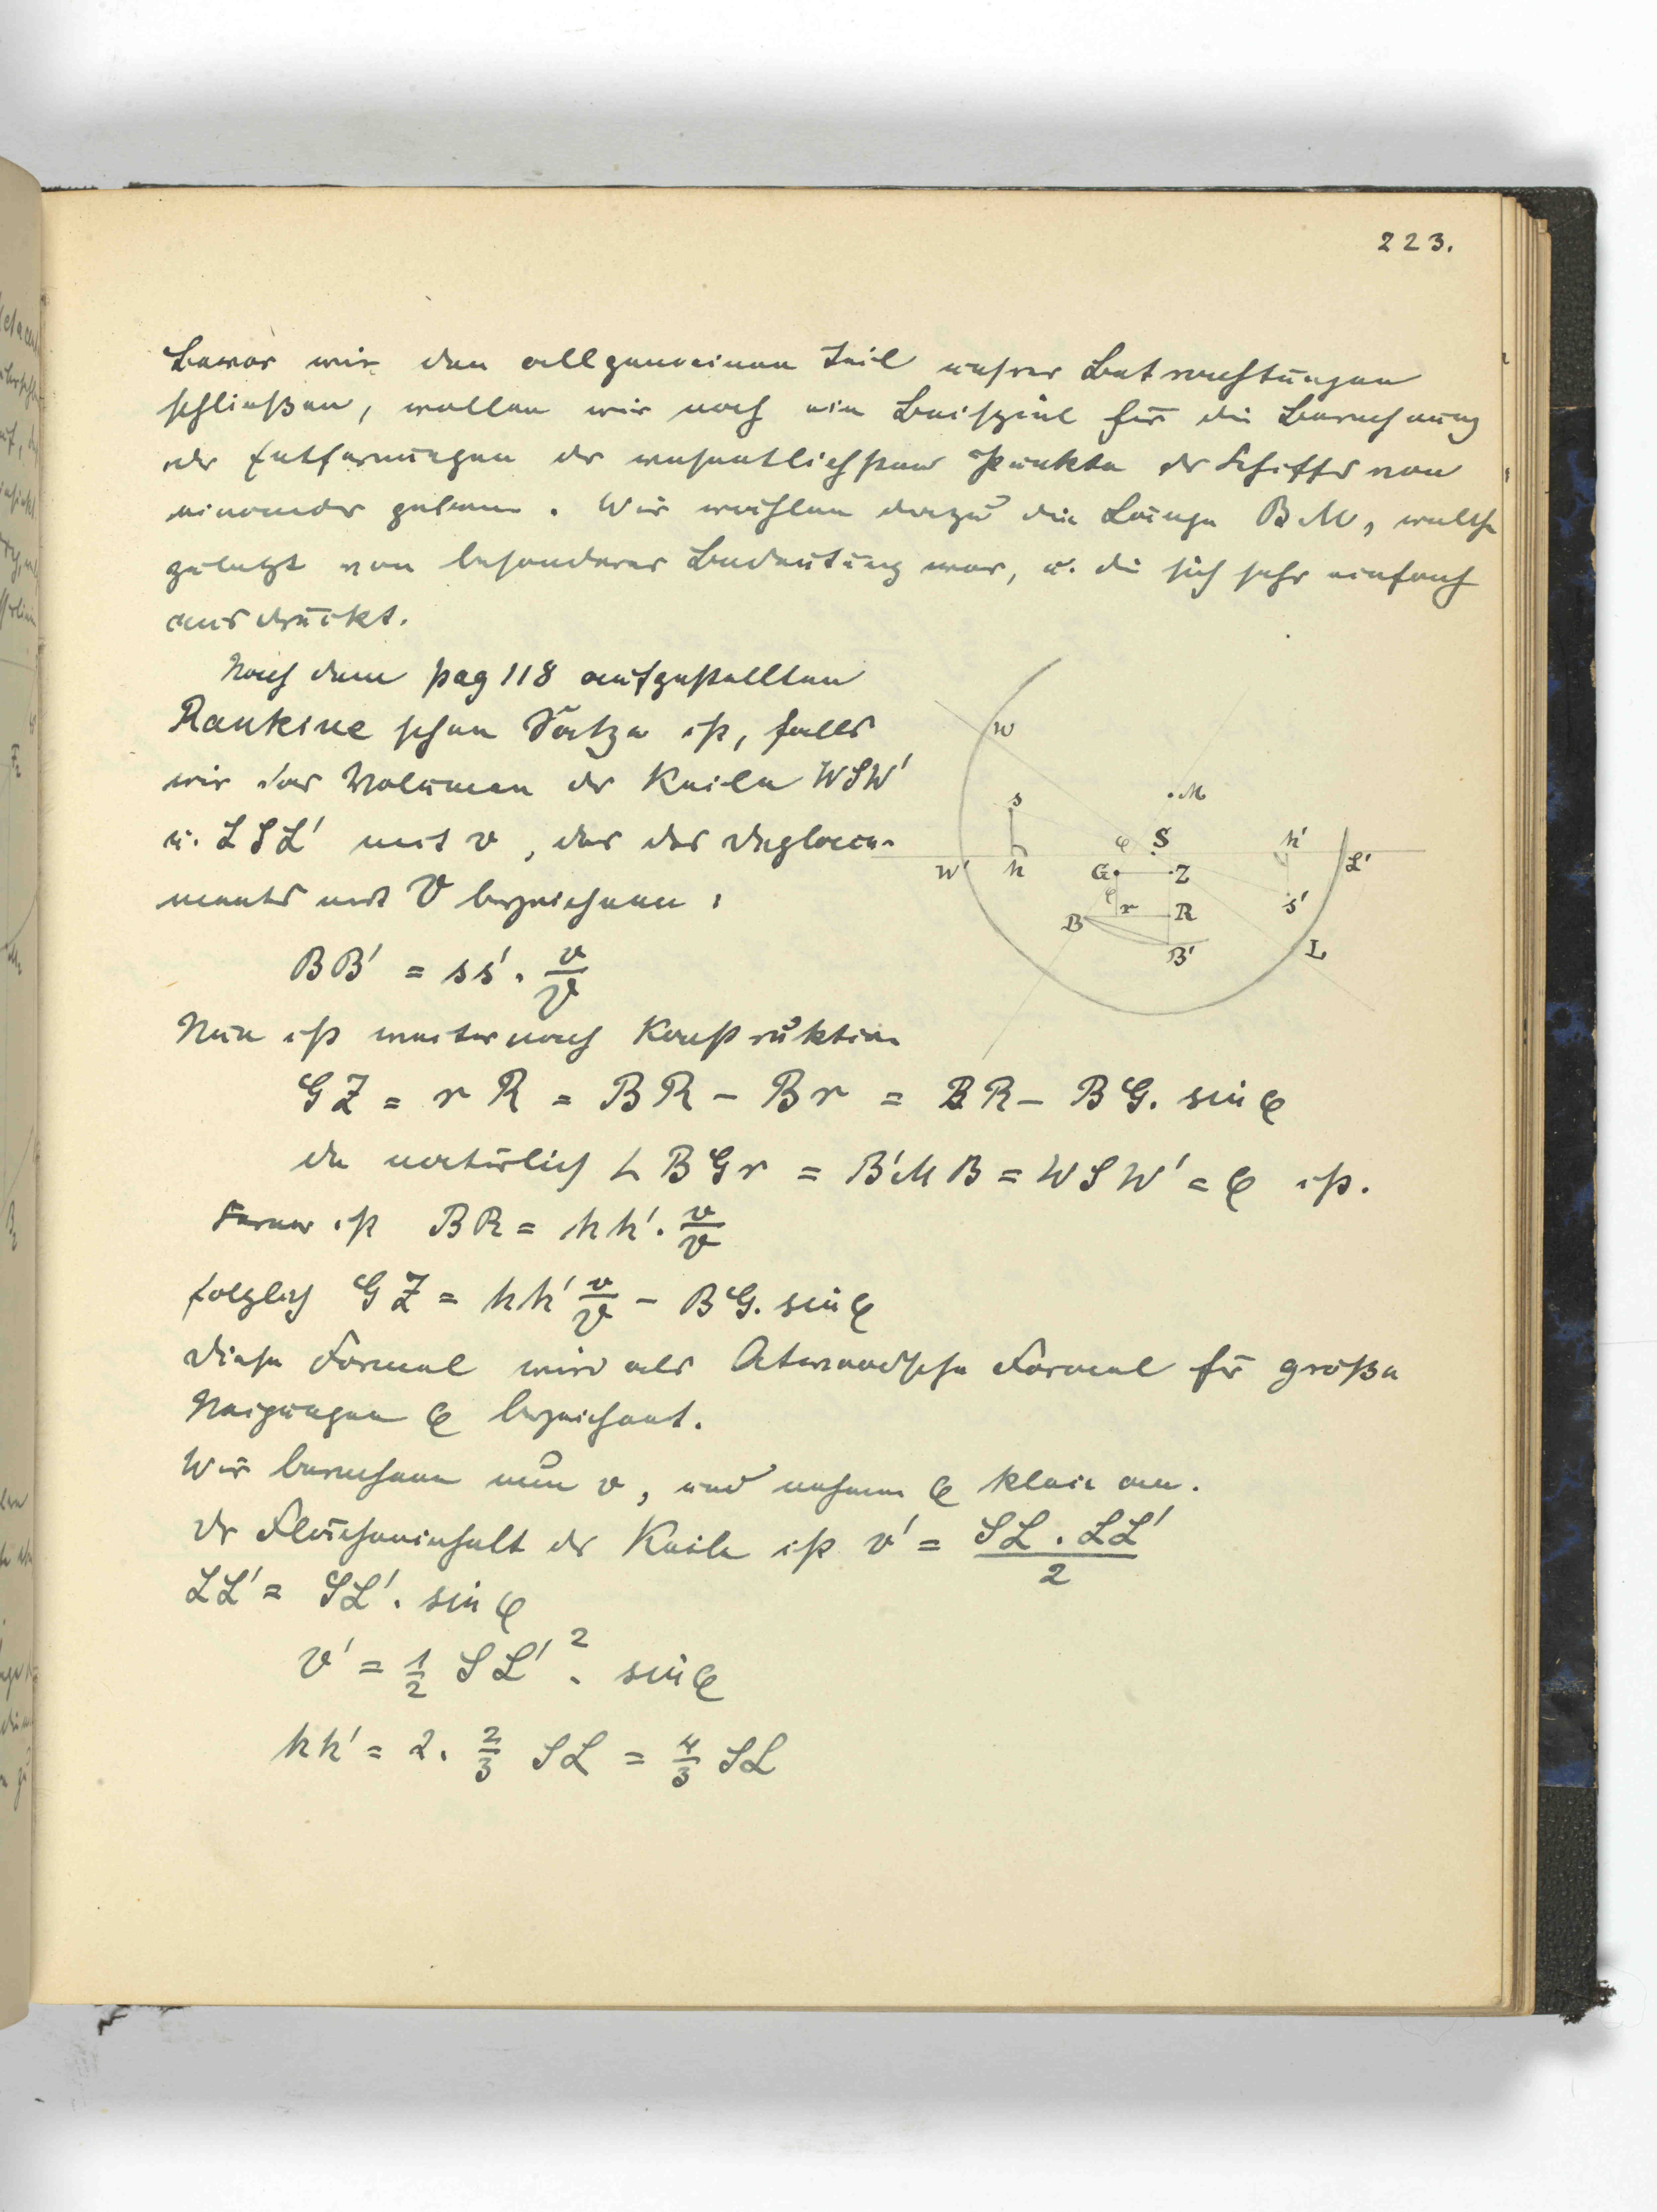 223.
Bevor wir den allgemeinen Teil unsrer Betrachtungen
schließen, wollen wir noch ein Beispiel für die Berechnung
der Entfernungen der wesentlichsten Punkte des Schiffes von
einander geben. Wir wählen dazu die Länge BM, welche
zuletzt von besonderer Bedeutung war, u. die sich sehr einfach
ausdrückt.
Nach dem pag 118 aufgestellten
Rankine schen Satze ist, falls
wir das Volumen der Keile WSW'
u. LSL' mit v, das des Deplace-
ments mit V bezeichnen:
BB' = ss' · v/V
Nun ist weiter nach Konstruktion
GZ = rR = BR - Br = BR - BG. sin φ
da natürlich ∠ BGr = B'MB = WSW' = φ ist.
Ferner ist BR = hh' · v/V
folglich GZ = hh' v/V - BG. sin φ
Diese Formel wird als Atwoodsche Formel für große
Neigungen φ bezeichnet.
Wir berechnen nun v, und nehmen φ klein an.
Der Flächeninhalt der Keile ist v' = SL . LL' / 2
LL' = SL' . sin φ
v' = 1/2 SL'² . sin φ
hh' = 2 . 2/3 SL = 4/3 SL
W
M
s
φ S
h'
W' h
G Z
L'
φ r R
s'
B
B'
L